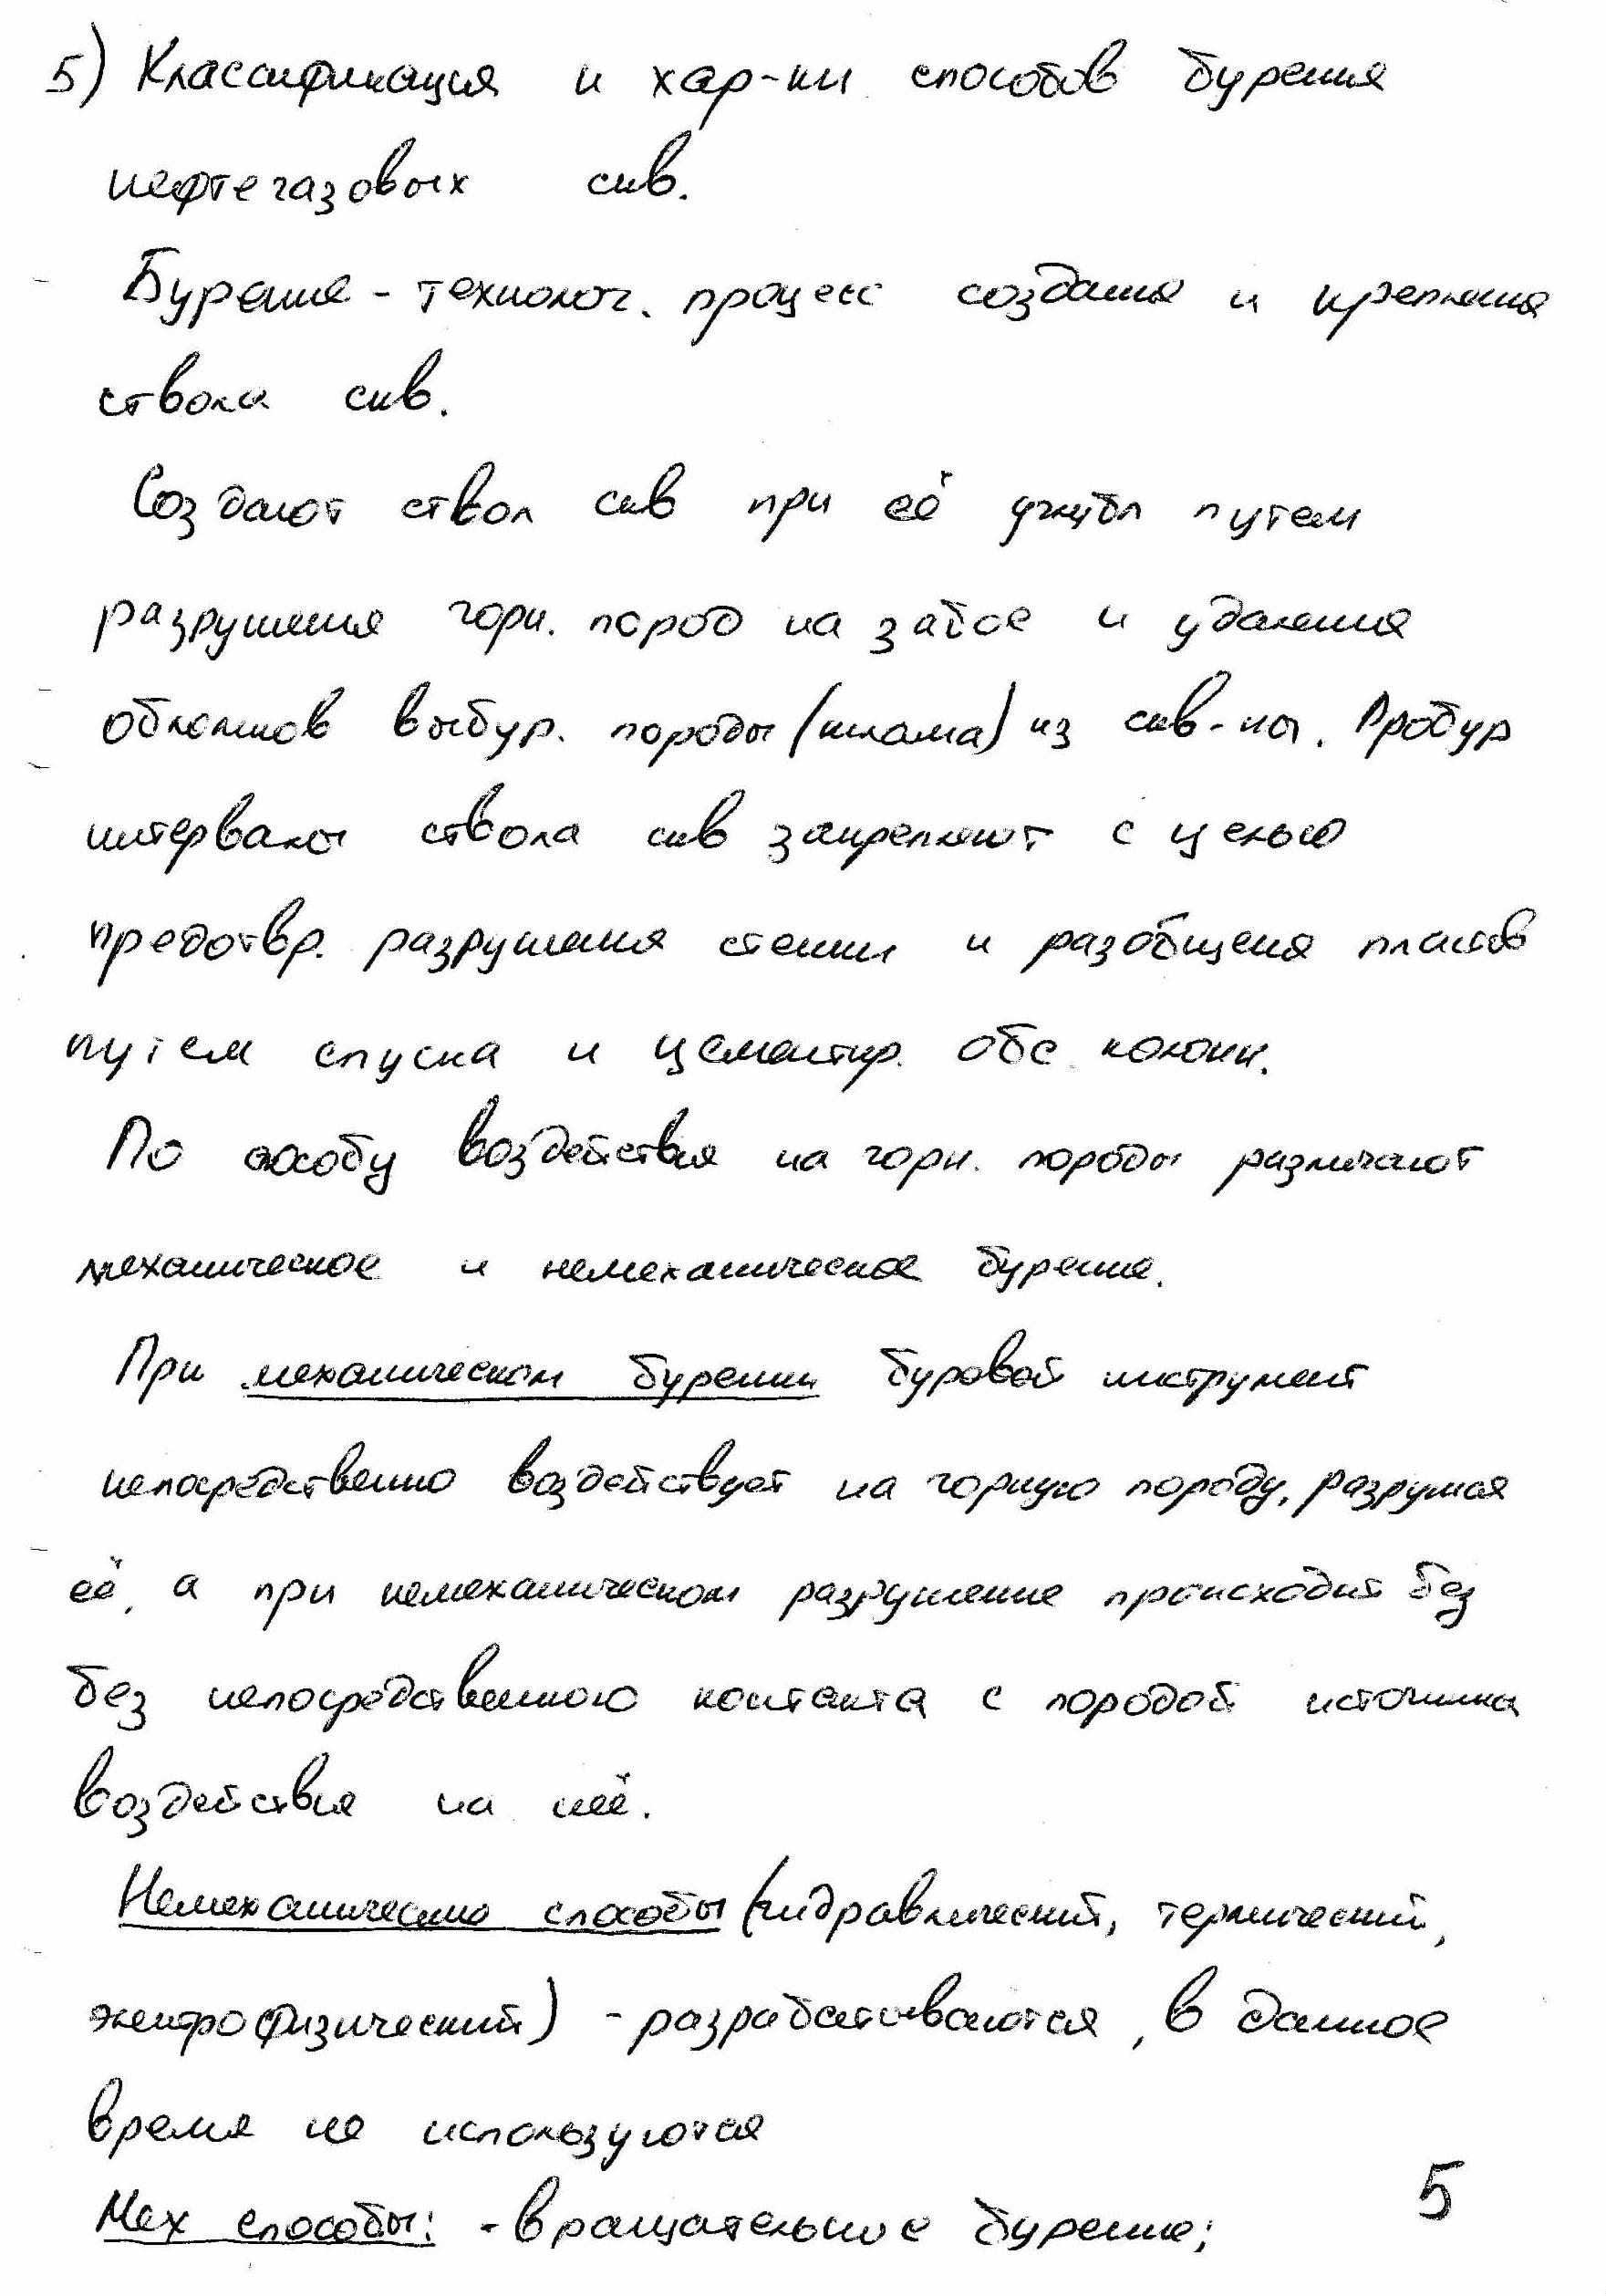 5) Классификация и хар-ки способов бурения
нефтегазовых скв.
Бурение - технолог. процесс создания и крепления
ствола скв.
Создают ствол скв при её углубл путем
разрушения горн. пород на забое и удаления
обломков выбур. породы (шлама) из скв-ны. Пробур
интервалы ствола скв закрепляют с целью
предотвр. разрушения стенки и разобщеня пластов
путем спуска и цементир. обс колонн.
По способу воздействия на горн. породы различают
механическое и немеханическое бурение.
При механическом бурении буровой инструмент
непосредственно воздействует на горную породу, разрушая
её, а при немеханическом разрушение происходит без
без непосредственного контакта с породой источника
воздействия на неё.
Немеханические способы (гидравлический, термический,
электрофизический) - разрабатываются, в данное
время не используются
Мех способы: - вращательное бурение;
5